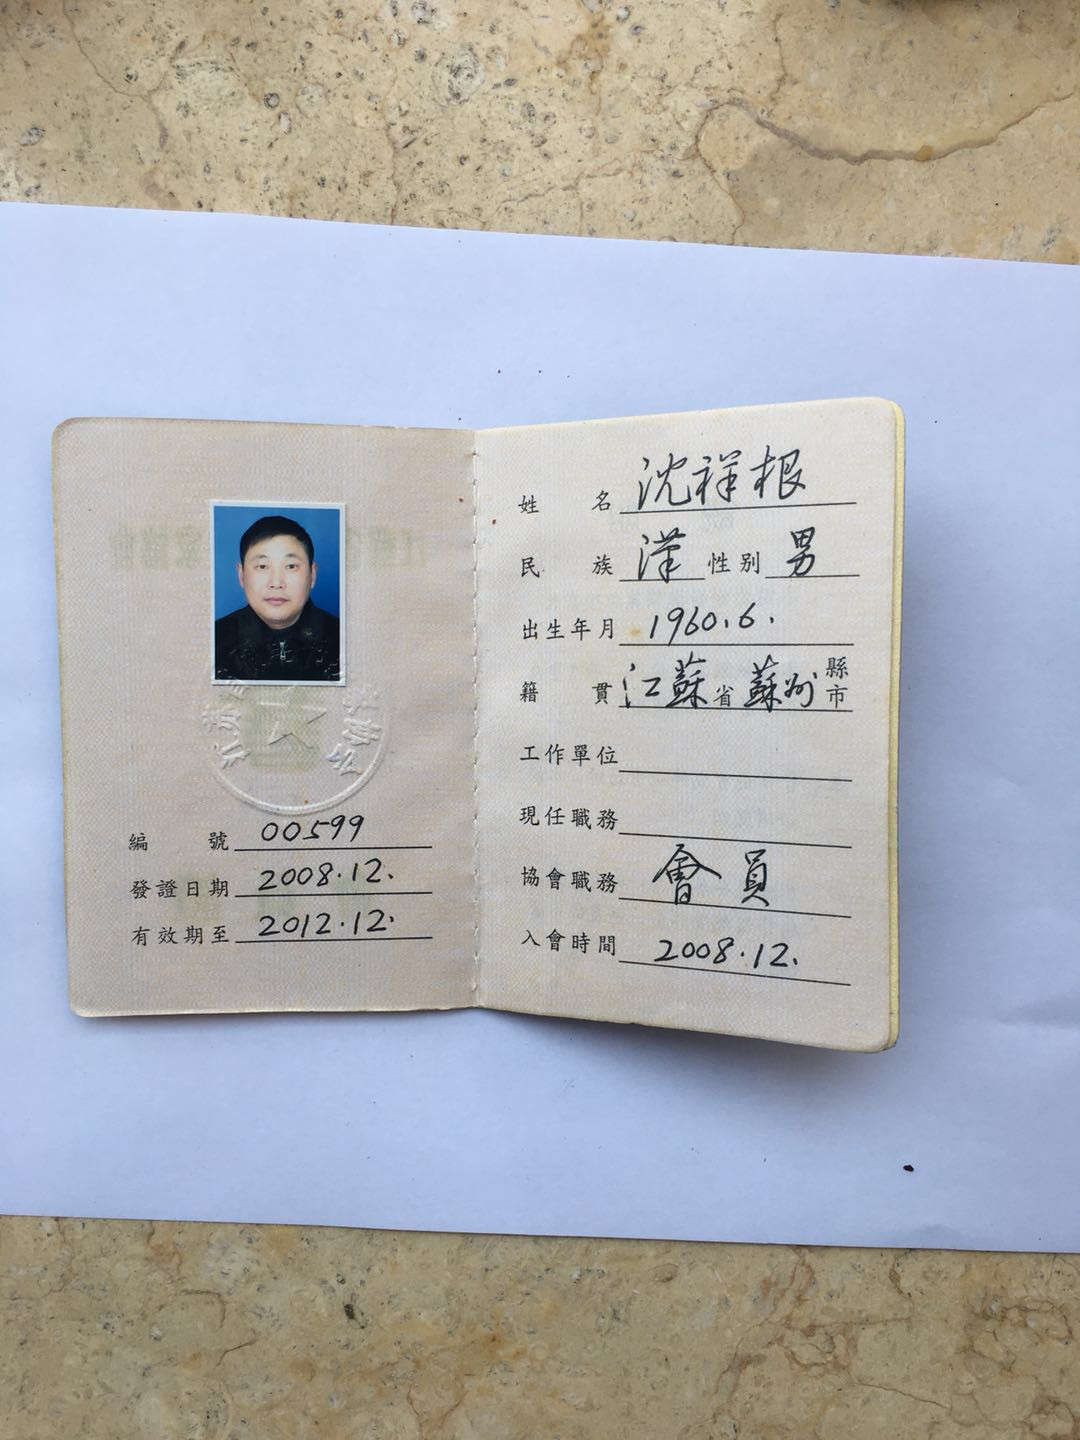 編號 00599
發證日期 2008.12.
有效期至 2012.12.
姓名 沈祥根
民族 漢 性别 男
出生年月 1960.6.
籍貫 江蘇省蘇州縣市
工作單位
現任職務
協會職務 會員
入會時間 2008.12.